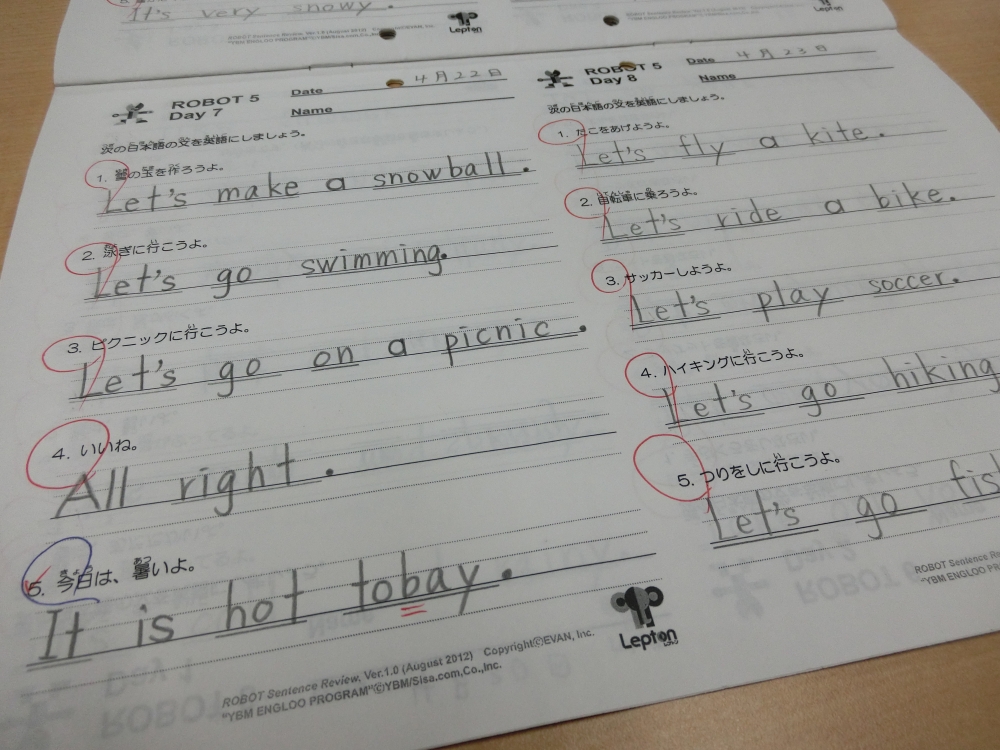 It's very snowy.
Lepton
ROBOT 5
Day 7
Date 4月22日
Name
次の日本語の文を英語にしましょう。
1. 雪の玉を作ろうよ。
Let's make a snowball.
2. 泳ぎに行こうよ。
Let's go swimming.
3. ピクニックに行こうよ。
Let's go on a picnic.
4. いいね。
All right.
5. 今日は、暑いよ。
It is hot tobay.
Lepton
ROBOT Sentence Review, Ver.1.0 (August 2012) Copyright©EVAN, Inc.
"YBM ENGLOO PROGRAM"©YBM/Sisa.com,Co.,Inc.
ROBOT 5
Day 8
Date 4月23日
Name
次の日本語の文を英語にしましょう。
1. たこをあげようよ。
Let's fly a kite.
2. 自転車に乗ろうよ。
Let's ride a bike.
3. サッカーしようよ。
Let's play soccer.
4. ハイキングに行こうよ。
Let's go hiking
5. つりをしに行こうよ。
Let's go fis
ROBOT Sentence Rev
"YBM ENGLOO PROGRAM